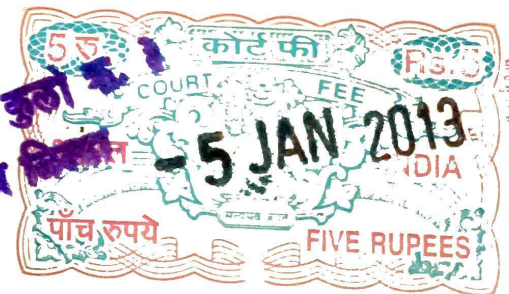 5 रु कोर्ट फी Rs. 5
COURT FEE
- 5 JAN 2013
INDIA
पाँच रुपये FIVE RUPEES